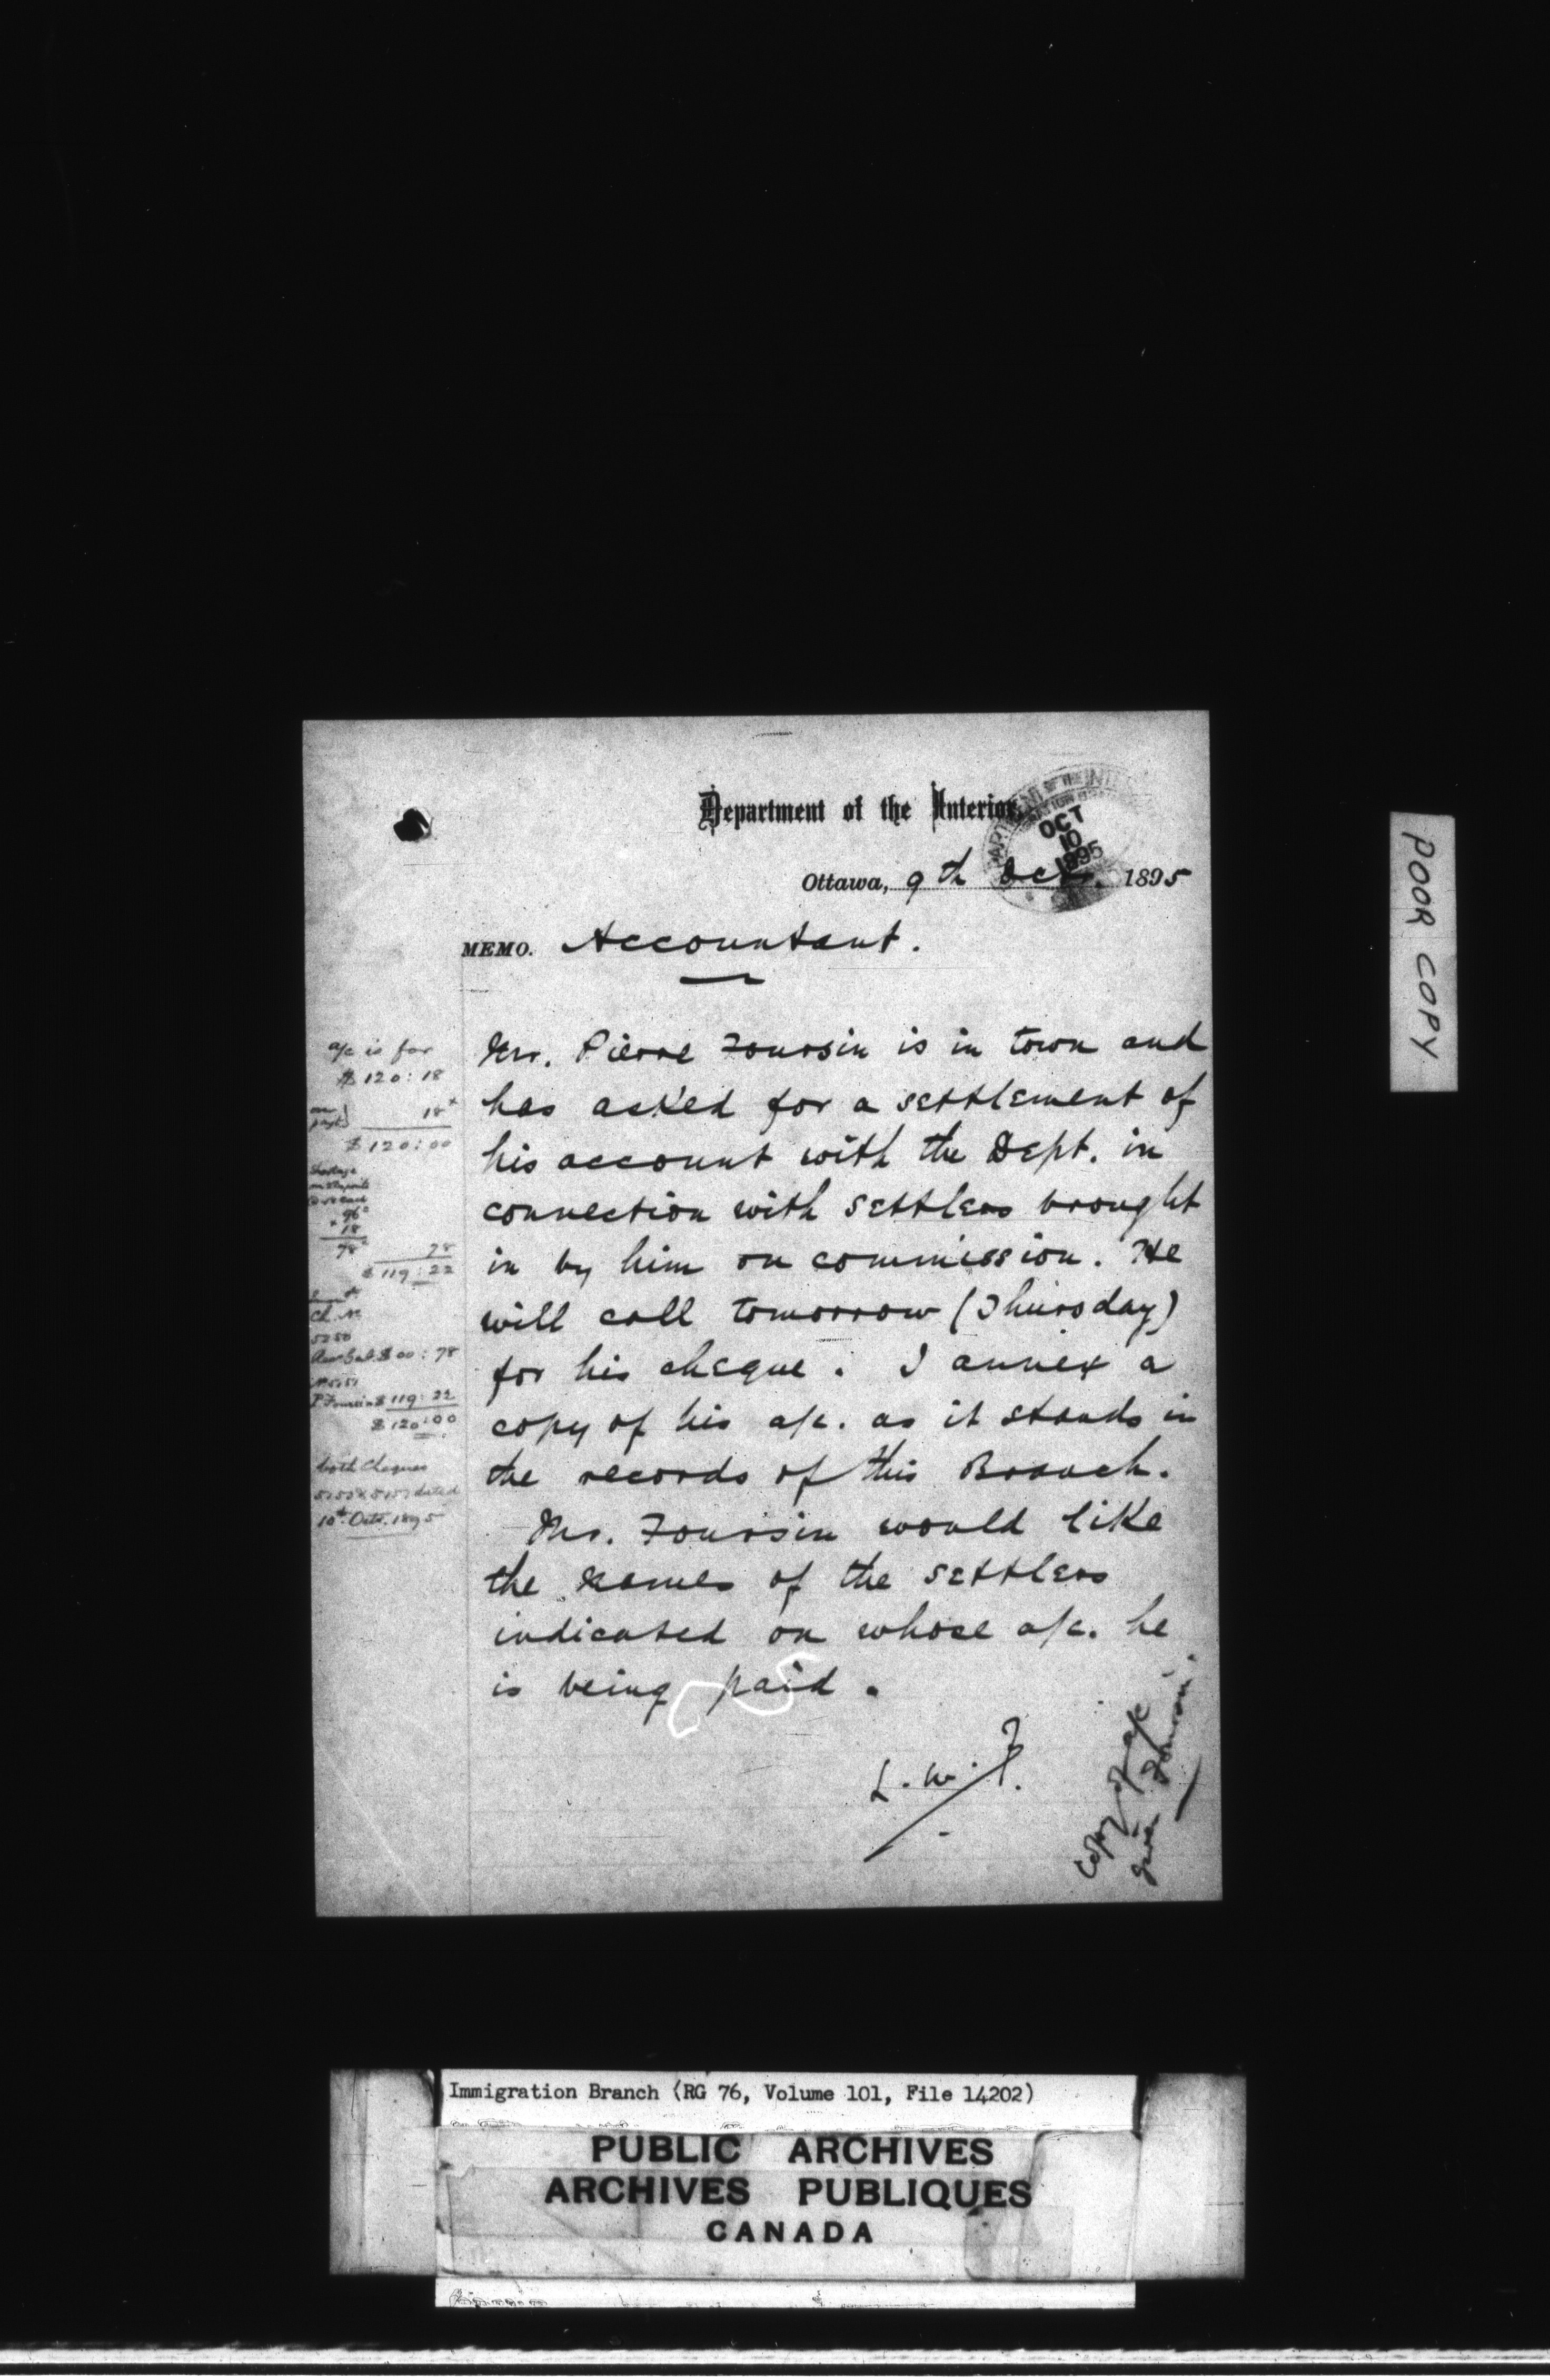 Department of the Interior,
DEPARTMENT OF THE INTERIOR
OCT
10
1895
Ottawa, 9th Oct. 1895
MEMO. Accountant.
Mr. Pierre Foursin is in town and
has asked for a settlement of
his account with the Dept. in
connection with settlers brought
in by him on commission. He
will call tomorrow (Thursday)
for his cheque. I annex a
copy of his a/c. as it stands in
the records of this Branch.
Mr. Foursin would like
the names of the settlers
indicated on whose a/c. he
is being paid.
copy of a/c
given Foursin.
a/c is for
$120:18
18
$120:00
96
18
78
78
$119:22
Ch. No
5250
$00:78
P. Foursin $119:22
$120:00
both Cheques
dated
10th Octr. 1895
POOR COPY
Immigration Branch (RG 76, Volume 101, File 14202)
PUBLIC ARCHIVES
ARCHIVES PUBLIQUES
CANADA